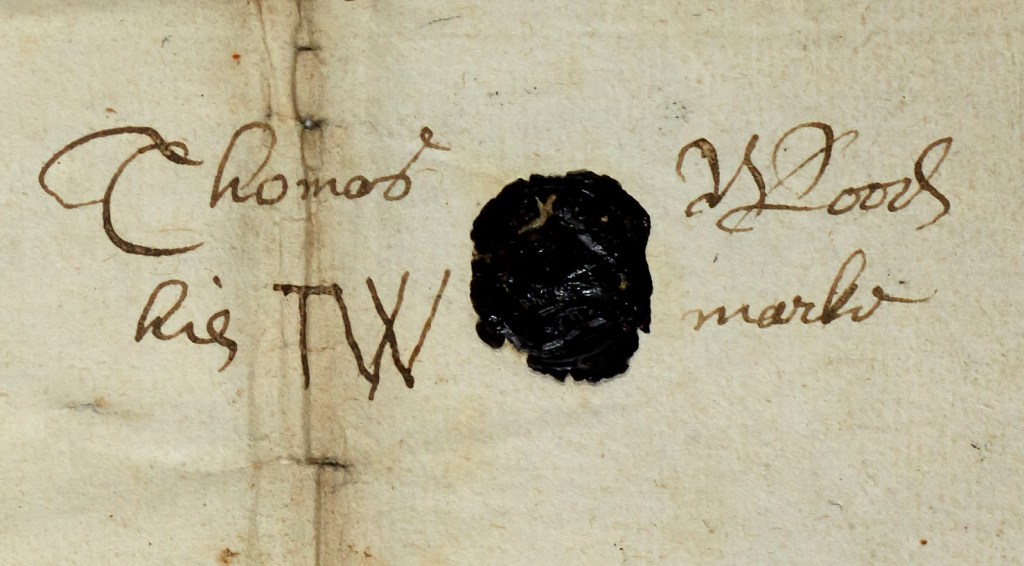 Thomas Wood
his TW marke